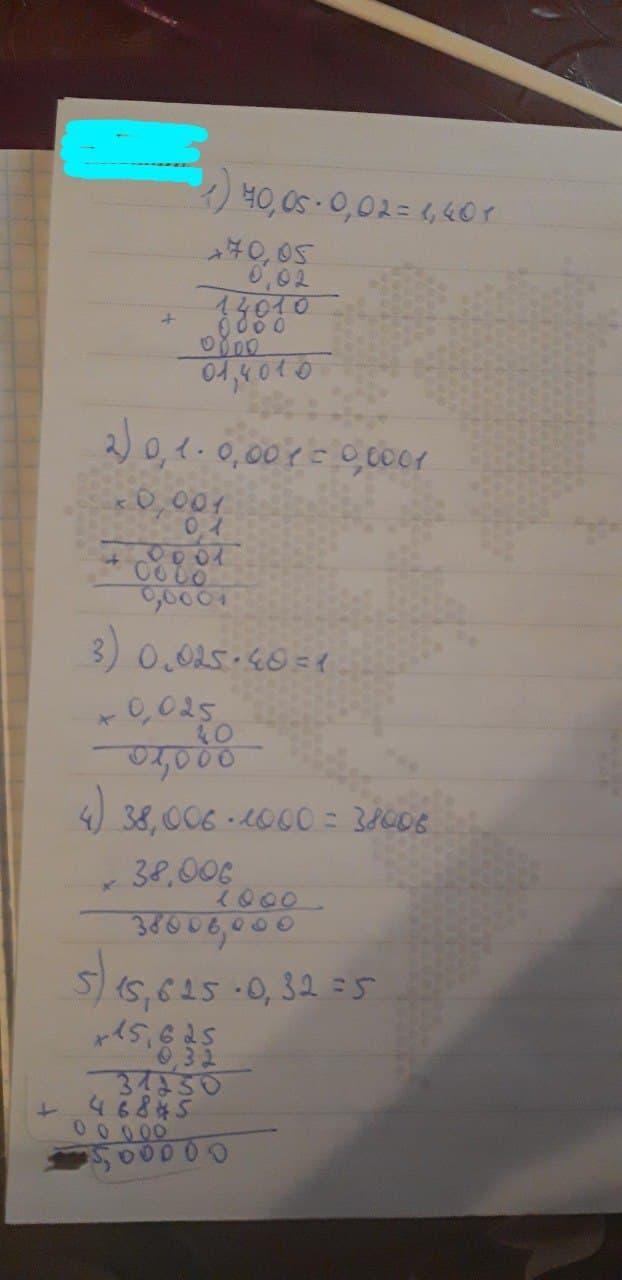 1) 70,05·0,02=1,401
×70,05
0,02
14010
+ 0000
0000
01,4010
2) 0,1·0,001=0,0001
×0,001
0,1
+ 0001
0000
0,0001
3) 0,025·40=1
×0,025
40
01,000
4) 38,006·1000=38006
× 38,006
1000
38006,000
5) 15,625·0,32=5
×15,625
0,32
31250
+ 46875
00000
5,00000